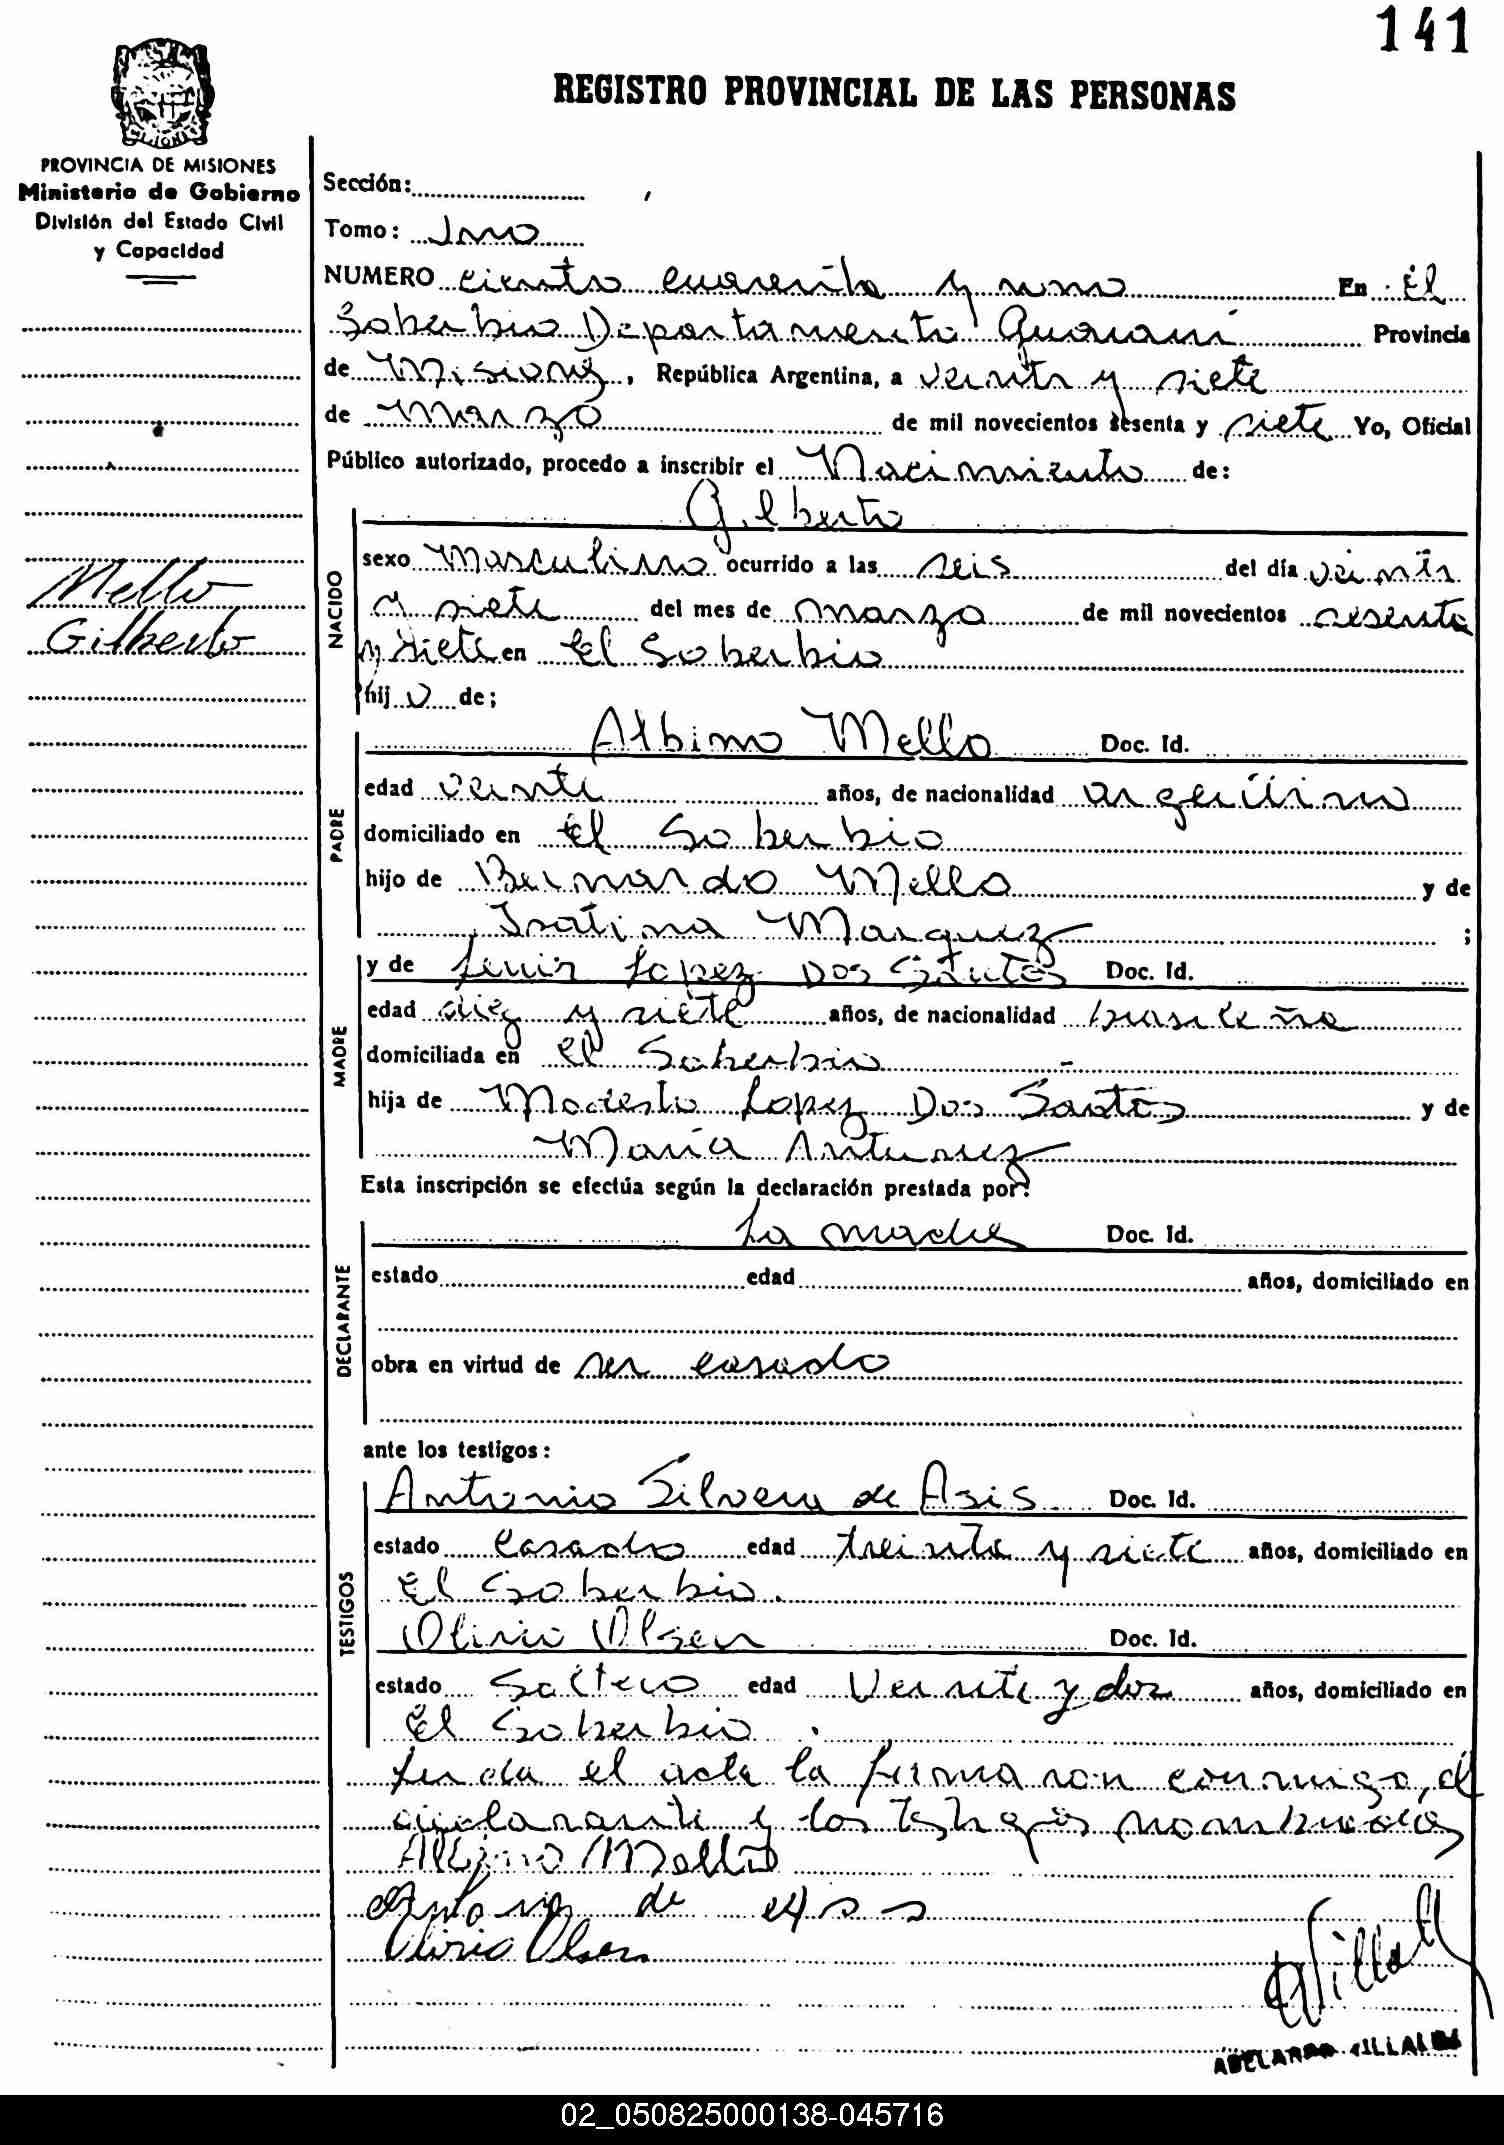 141
REGISTRO PROVINCIAL DE LAS PERSONAS
PROVINCIA DE MISIONES
Ministerio de Gobierno
División del Estado Civil
y Capacidad
Mello
Gilberto
Sección:
Tomo: Uno
NUMERO ciento cuarenta y uno En El
Soberbio Departamento Guarani Provincia
de Misiones, República Argentina, a veinte y siete
de Marzo de mil novecientos sesenta y siete Yo, Oficial
Público autorizado, procedo a inscribir el Nacimiento de:
Gilberto
NACIDO
sexo Masculino ocurrido a las seis del día veinte
y siete del mes de marzo de mil novecientos sesenta
y siete en El Soberbio
hijo de;
PADRE
Albino Mello Doc. Id.
edad veinte años, de nacionalidad argentino
domiciliado en El Soberbio
hijo de Bernardo Mello y de
Marquez ;
MADRE
y de Lopez Dos Santos Doc. Id.
edad diez y siete años, de nacionalidad brasileña
domiciliada en El Soberbio
hija de Modesto Lopez Dos Santos y de
María Antunez
Esta inscripción se efectúa según la declaración prestada por:
DECLARANTE
La madre Doc. Id.
estado edad años, domiciliado en
obra en virtud de ser casado
ante los testigos:
TESTIGOS
Antonio Silvera de Asis Doc. Id.
estado Casado edad treinta y siete años, domiciliado en
El Soberbio.
Olirio Olsen Doc. Id.
estado Soltero edad Veinte y dos años, domiciliado en
El Soberbio.
el acta la firman con conmigo, el
declarante y los testigos nombrados
Albino Mello
Antonio de
Olirio Olsen
ABELARDO VILLALBA
02_050825000138-045716